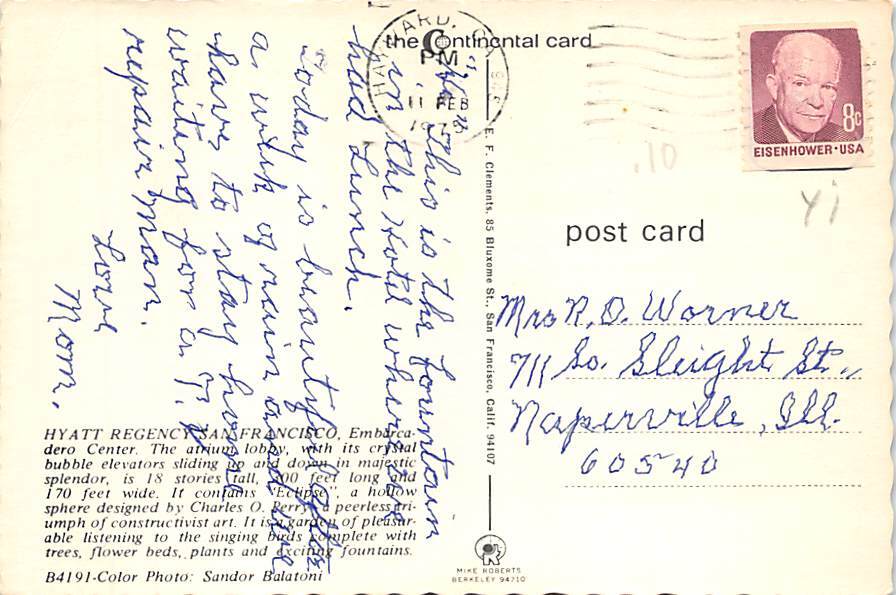 the Continental card
HAYWARD, CA
PM
11 FEB
EISENHOWER·USA
8c
.10
post card
Mrs R. D. Worner
711 So. Sleight St.,
Naperville, Ill.
60540
This is the fountain
in the Hotel where we
had Lunch.
Today is beautiful after
a week of rain and we
have to stay home
waiting for a T.V.
repair man.
Love
Mom.
E. F. Clements, 85 Bluxome St., San Francisco, Calif. 94107
HYATT REGENCY SAN FRANCISCO, Embarca-
dero Center. The atrium lobby, with its crystal
bubble elevators sliding up and down in majestic
splendor, is 18 stories tall, 300 feet long and
170 feet wide. It contains "Eclipse", a hollow
sphere designed by Charles O. Perry, a peerless tri-
umph of constructivist art. It is a garden of pleasur-
able listening to the singing birds complete with
trees, flower beds, plants and exciting fountains.
B4191-Color Photo: Sandor Balatoni
MIKE ROBERTS
BERKELEY 94710